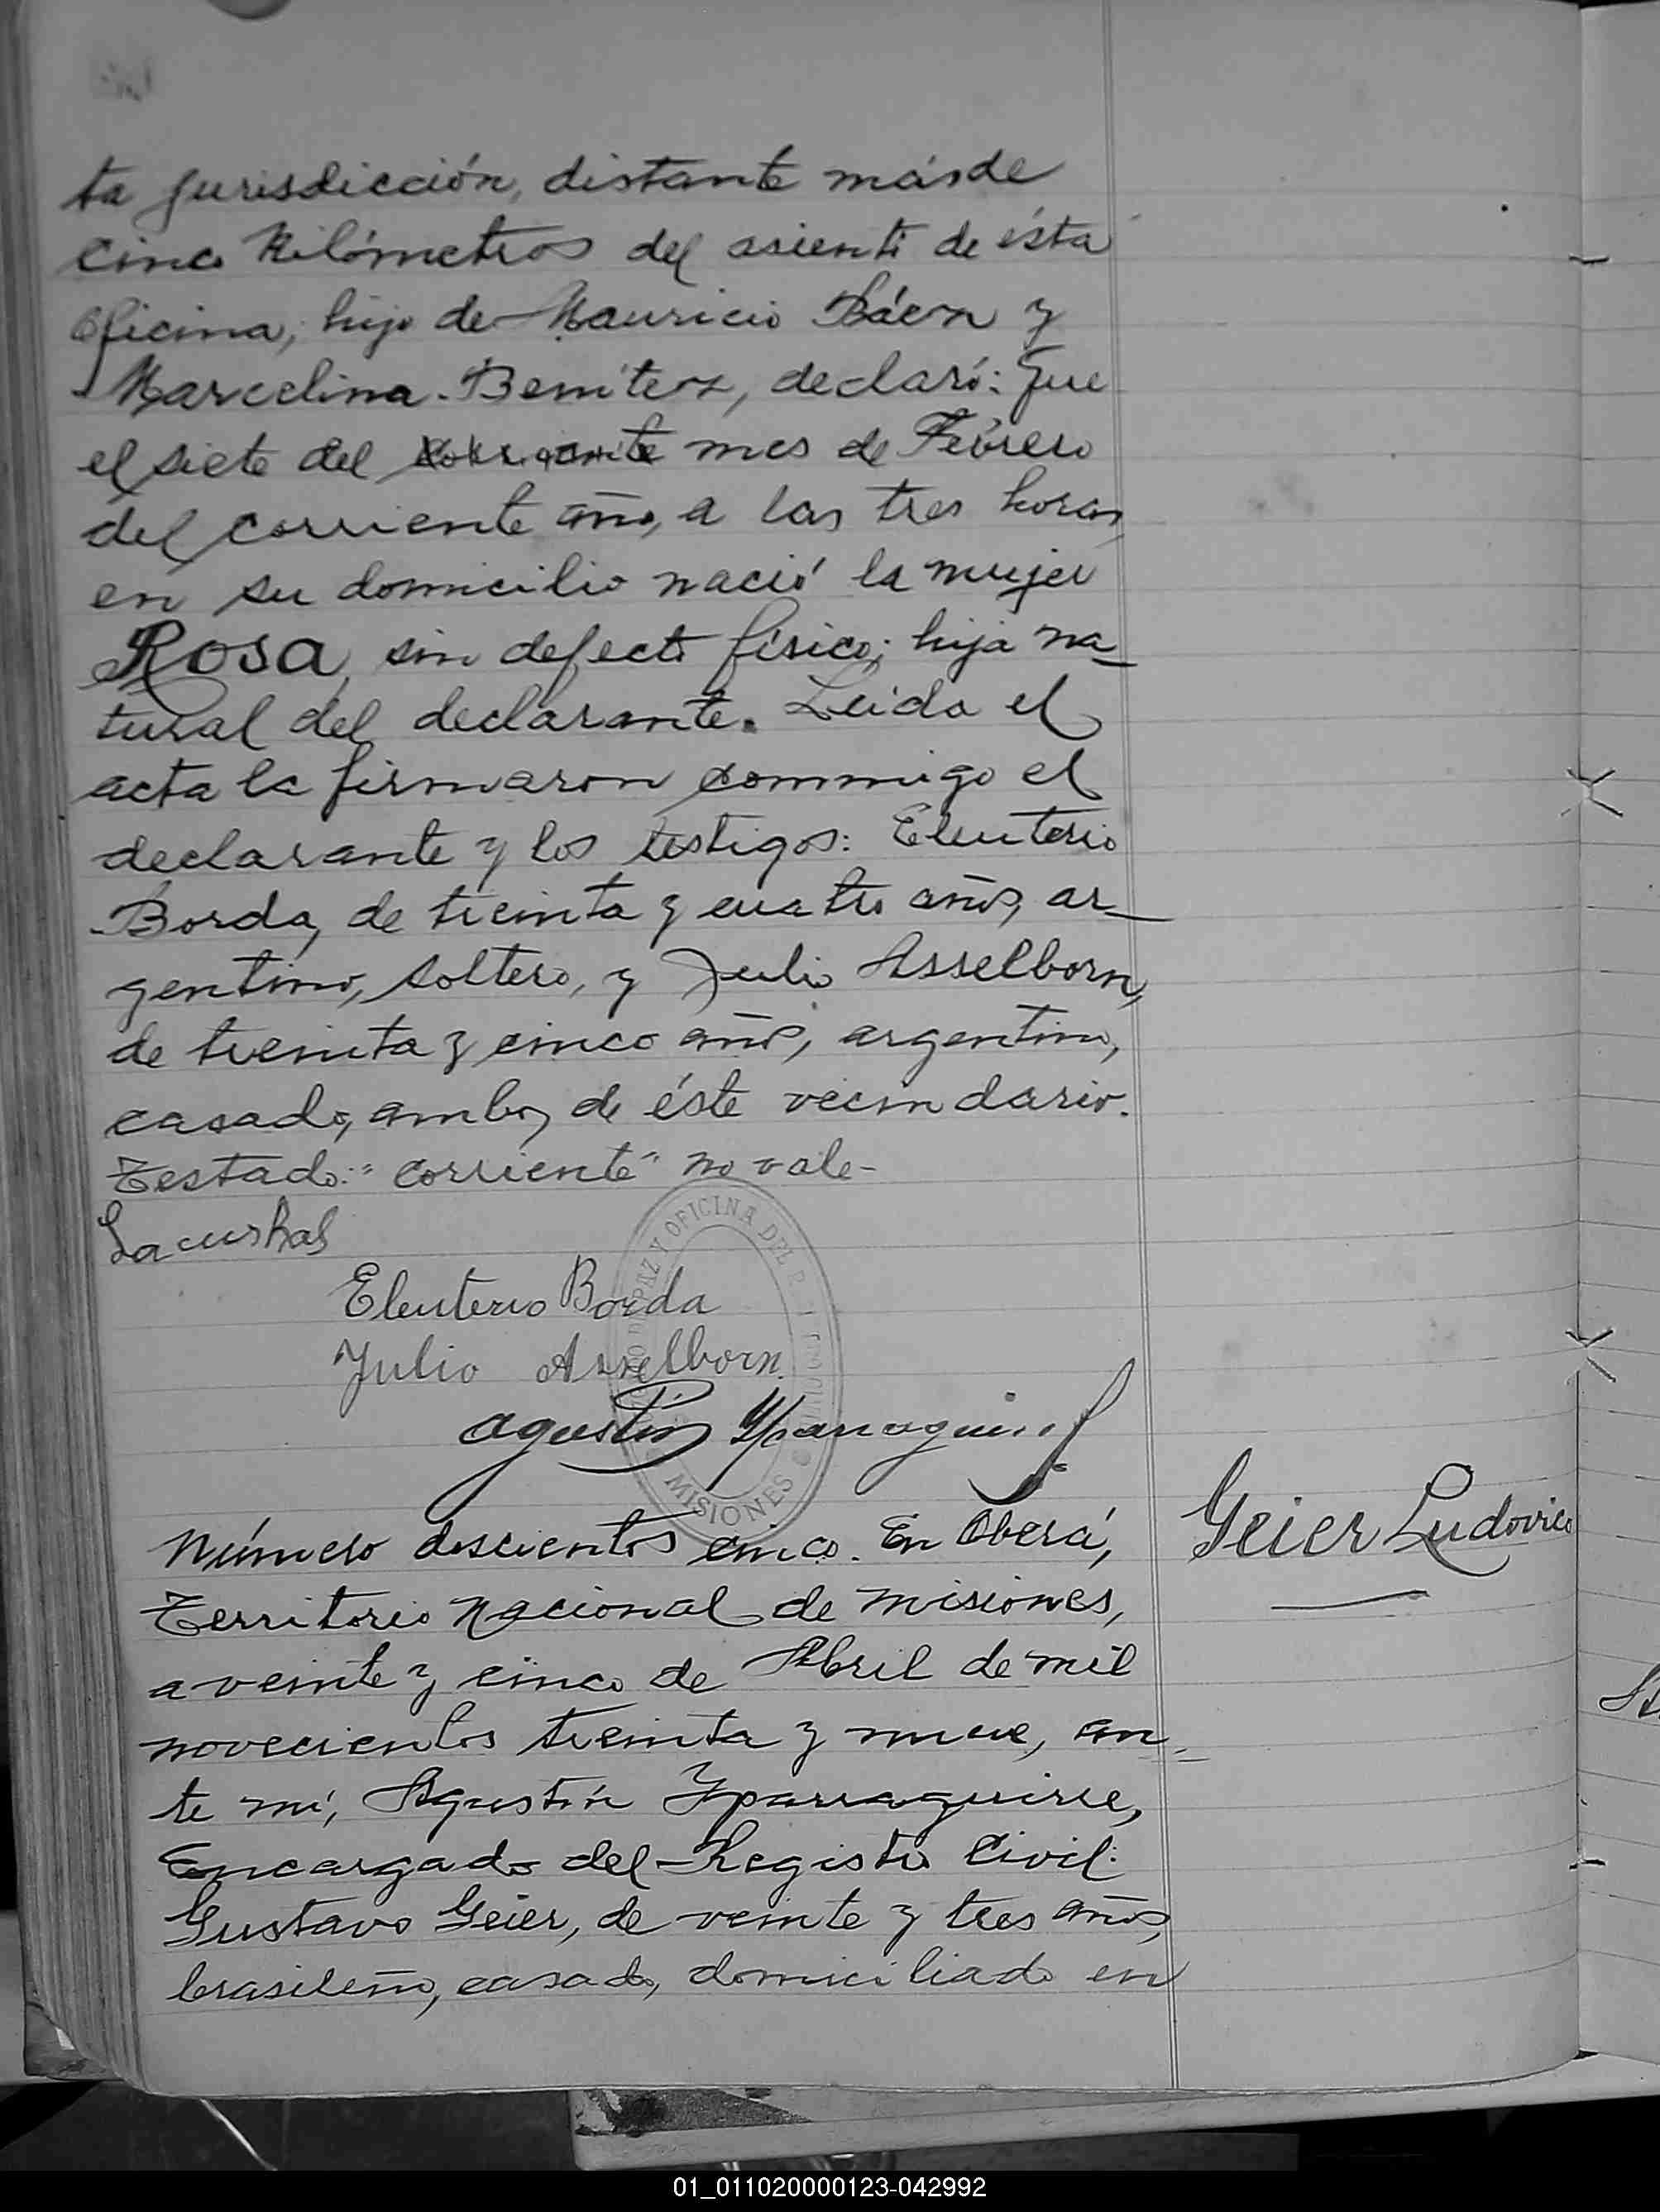 ta jurisdicción, distante más de
cinco Kilómetros del asiento de ésta
Oficina, hijo de Mauricio Báez y
Marcelina Benítez, declaró: Que
el siete del corriente mes de Febrero
del corriente año, a las tres horas,
en su domicilio nació la mujer
Rosa, sin defecto físico; hija na_
tural del declarante. Leida el
acta la firmaron conmigo el
declarante y los testigos: Eleuterio
Borda, de treinta y cuatro años, ar_
gentino, soltero, y Julio Asselborn,
de treinta y cinco años, argentino,
casado, ambos de éste vecindario.
Testado: "corriente" no vale-
Eleuterio Borda
Julio Asselborn.
Agustín Yparraguirre
OFICINA DEL
MISIONES
Número doscientos cinco. En Oberá,
Geier Ludovico
Territorio Nacional de Misiones,
a veinte y cinco de Abril de mil
novecientos treinta y nueve, an_
te mí, Agustín Yparraguirre,
Encargado del Registro Civil:
Gustavo Geier, de veinte y tres años,
brasileño, casado, domiciliado en
01_011020000123-042992